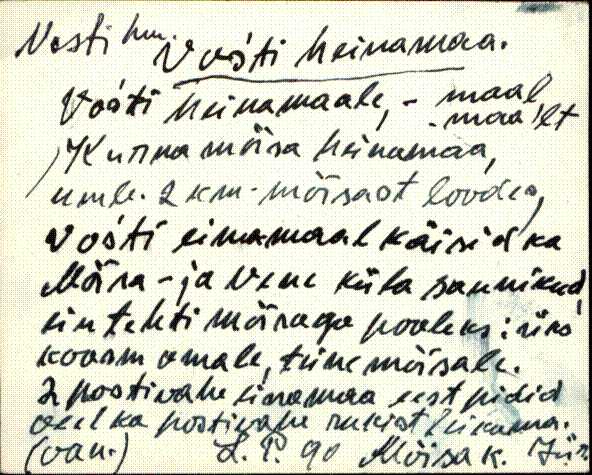 Vesti hm.
Vośti heinamaa.
Vośti heinamaale, - maal,
- maa'lt
/Kurna mõisa heinamaa,
umb. 2 km. mõisast loodes,
Vośti einamaal käisid ka
Mõisa - ja Vene küla saunikud,
ein tehti mõisaga pooleks: üks
koorm omale, teine mõisale.
2 postivahe einamaa eest pidid
veel ka postivahe rukist leikama.
(van.) L. P. 90 Mõisa k. Jür